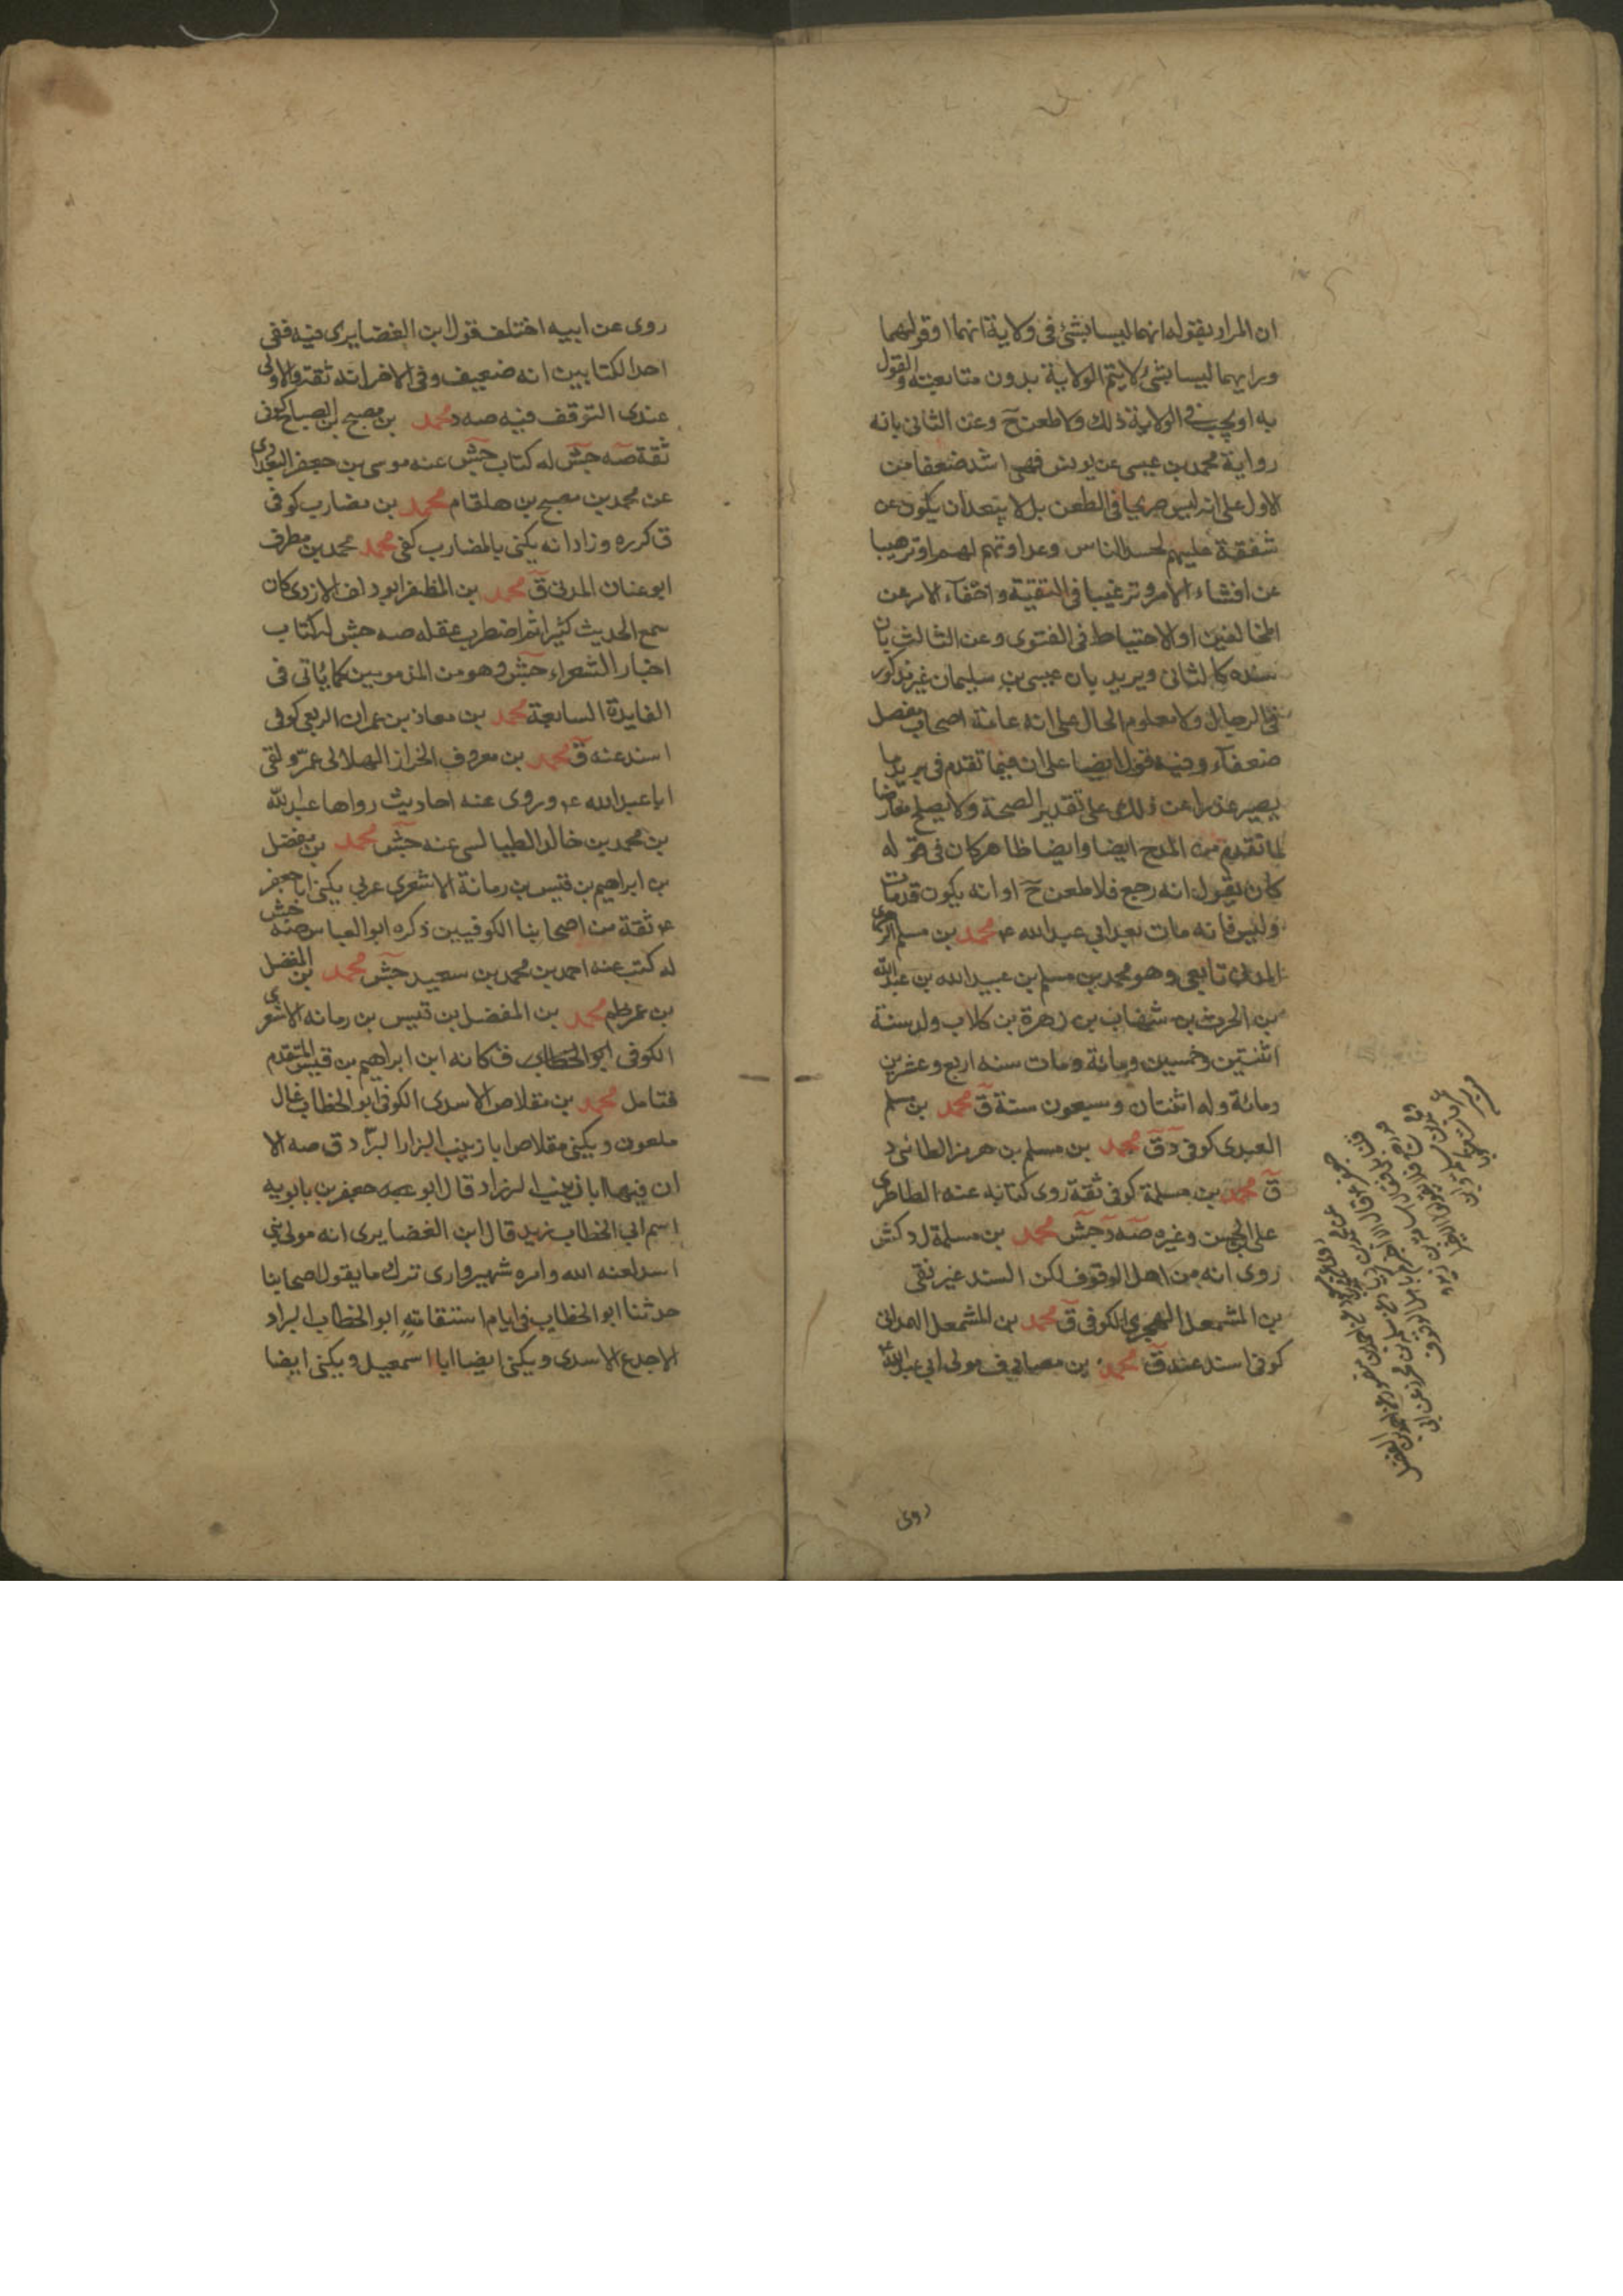 ان المراد بقوله انهما ليسا بشئ في ولاية انهما او قولهما
وبرايهما ليسا بشئ لا يتم الولاية بدون متابعته والقول
به او يجب في الولاية ذلك ولا طعن ح وعن الثاني بانه
رواية محمد بن عيسى عن يونس فهى اشد ضعفا من
الاول على انه ليس صريحا في الطعن بل لا يبعد ان يكون عن
شفقة عليهم لحسد الناس وعداوتهم لهم او ترهيبا
عن افشاء الامر وترغيبا في التقية واخفآء الامر عن
المخالفين او الاحتياط في الفتوى وعن الثالث بان
سنده كالثاني ويريد بان عيسى بن سليمان غير مذكور
في الرجال ولا معلوم الحال على انه عامة اصحاب مفضل
ضعفآء وفيه قول ايضا على ان فيما تقدم في بريد ما
يصير عذرا عن ذلك على تقدير الصحة ولا يصلح معارضا
لما تقدم من المدح ايضا وايضا ظاهر كان في قوله
كان يقول انه رجع فلا طعن ح او انه يكون قد مات
وليس فانه مات بعد ابي عبد الله ع محمد بن مسلم الزهري
المدني تابعي وهو محمد بن مسلم بن عبيد الله بن عبد الله
بن الحرث بن شهاب بن زهرة بن كلاب ولد سنة
اثنتين وخمسين ومائة ومات سنه اربع وعشرين
ومائة وله اثنتان وسبعون سنة ق محمد بن مسلم
العبدى كوفي د ق محمد بن مسلم بن هرمز الطائي د
ق محمد بن مسلمة كوفي ثقة روى كتابه عنه الطاطرى
على بن الحسن وغيره صه د جش محمد بن مسلمة ل د كش
روى انه من اهل الوقوف لكن السند غير نقى
بن المشمعل الهجرى الكوفي ق محمد بن المشمعل الهمداني
كوفي اسند عنه ق محمد بن مصادف مولى ابي عبد الله
روى
روى عن ابيه اختلف قول ابن الغضايرى فيه ففى
احد الكتابين انه ضعيف وفي الاخر انه ثقة والاولى
عندى التوقف فيه صه د محمد بن مصبح بن الصباح كوفى
ثقة صه جش له كتاب جش عنه موسى بن جعفر البغدادى
عن محمد بن مصبح بن هلقام محمد بن مضارب كوفى
ق كرره وزاد انه يكنى بالمضارب كفى محمد محمد بن مطرف
ابو عنان المدني ق محمد بن المظفر ابو دلف الازدى كان
سمع الحديث كثيرا ثم اضطرب عقله صه جش له كتاب
اخبار الشعراء جش وهو من المذمومين كما ياتى فى
الفايدة السابعة محمد بن معاذ بن عمران الربعى كوفى
اسند عنه ق محمد بن معروف الخزاز الهلالى عمر ولقى
ابا عبد الله ع وروى عنه احاديث رواها عبد الله
بن محمد بن خالد الطيالسى عنه جش محمد بن مفضل
بن ابراهيم بن قيس بن رمانة الاشعرى عربي يكنى ابا جعفر
ع ثقة من اصحابنا الكوفيين ذكره ابو العباس صه جش
له كتب عنه احمد بن محمد بن سعيد جش محمد بن المفضل
بن عمر ظم محمد بن المفضل بن قيس بن رمانه الاشعرى
الكوفى ابو الخطاب ق كانه ابن ابراهيم بن قيس المتقدم
فتامل محمد بن مقلاص الاسدى الكوفى ابو الخطاب غال
ملعون ويكنى مقلاص ابا زينب البزاز البرّاد ق صه الا
ان فيها ابا زينب الزراد قال ابو جعفر بن بابويه
اسم ابي الخطاب زيد قال ابن الغضايرى انه مولى بني
اسد لعنه الله وامره شهير وارى ترك ما يقول اصحابنا
حدثنا ابو الخطاب فى ايام استقامته ابو الخطاب البراد
الاجدع الاسدى ويكنى ايضا ابا اسمعيل ويكنى ايضا